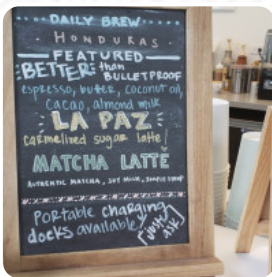 DAILY BREW
HONDURAS
FEATURED
BETTER than
BULLETPROOF
espresso, butter, coconut oil,
cacao, almond milk
LA PAZ
carmelized sugar latte
MATCHA LATTE
AUTHENTIC MATCHA, SOY MILK, SIMPLE SYRUP
portable charging
docks available
[just
ask]